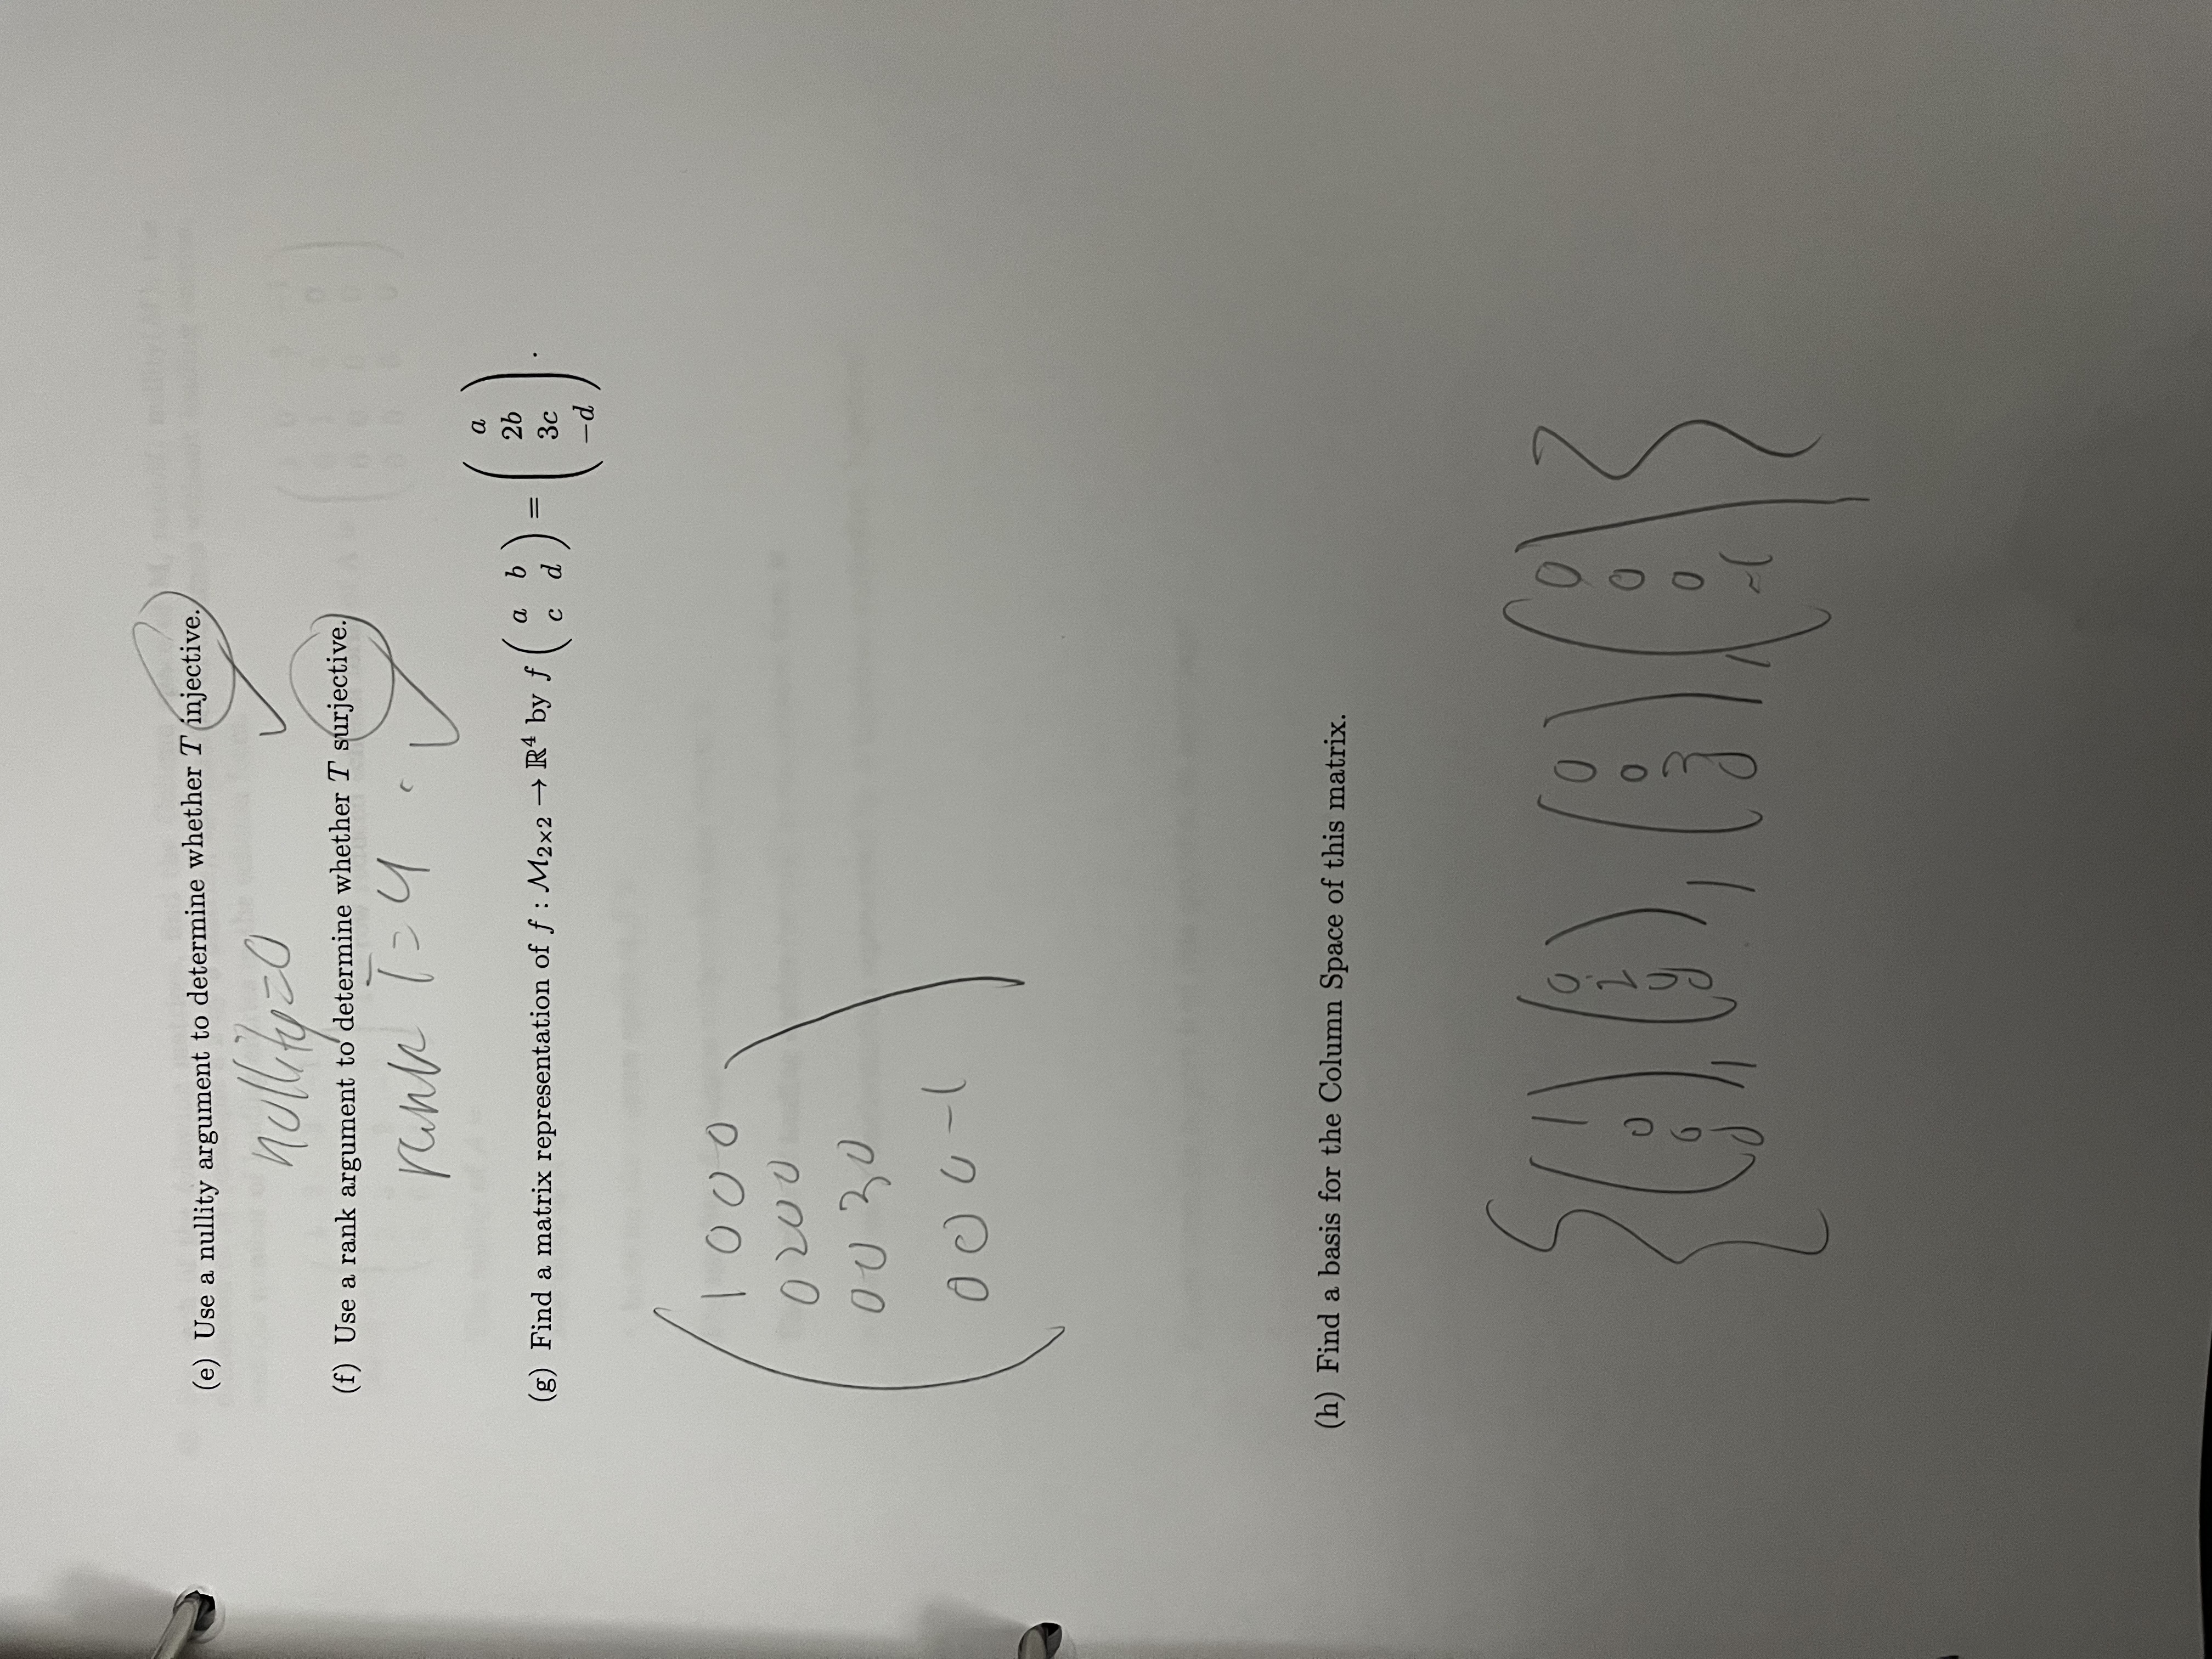 (e) Use a nullity argument to determine whether T injective.
nullity=0
(f) Use a rank argument to determine whether T surjective.
rank T=4
(g) Find a matrix representation of f : M2×2 → ℝ4 by f ( a b c d ) = ( a 2b 3c −d ) .
1 0 0 0
0 2 0 0
0 0 3 0
0 0 0 -1
(h) Find a basis for the Column Space of this matrix.
{ ( 1 0 0 0 ) , ( 0 2 0 0 ) , ( 0 0 3 0 ) , ( 0 0 0 -1 ) }